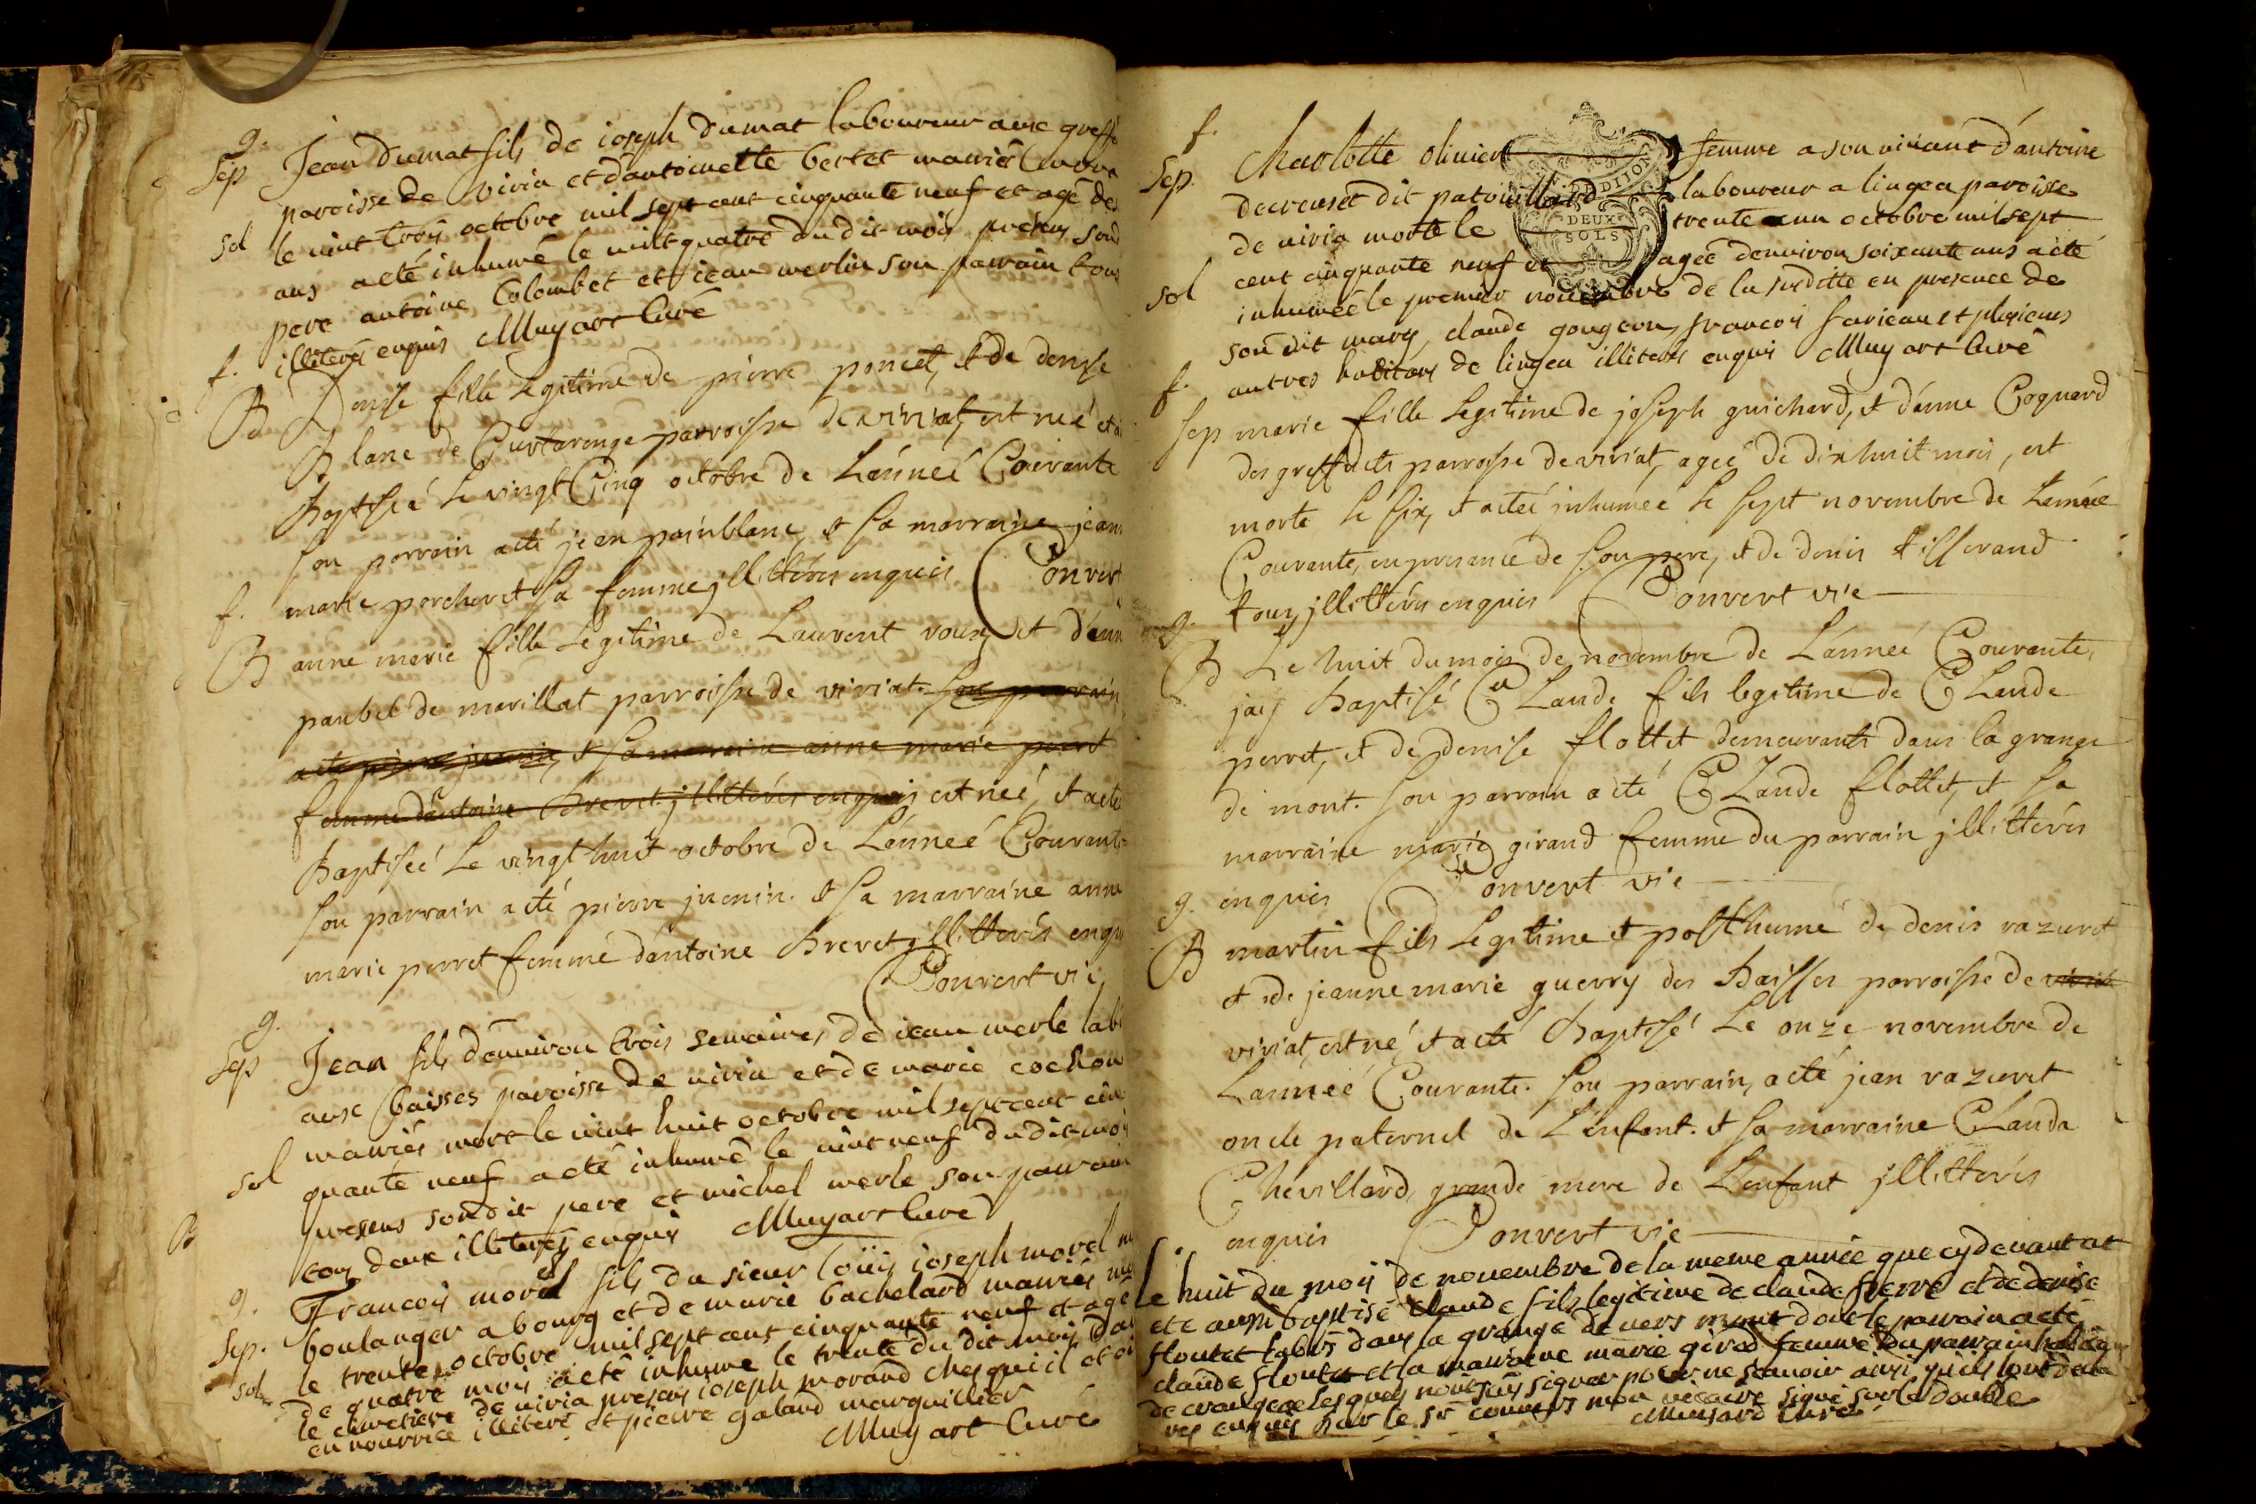 g.
Sep Jean Dumat fils de ioseph Dumat laboureur aux greffe
paroisse de viria et d'antoinette bertet mariés mort
sol le vint trois octobre mil sept cent cinquante neuf et agé de
ans a eté inhumé le vint quatre du dit mois presens son
pere antoine Colombet et jean merlin son parrain tous
illiterés enquis Muyart Curé
f.
B Denise fille Legitime de pierre poncet, et de denise
Blanc de Curtarenge parroisse de viriat, est neé et a
Baptiseé le vingt Cinq octobre de L'anneé Courante
son parrain a eté jean painblanc, et sa marraine jean
marie porcheret sa femme jllittérés enquis Convert
f.
B anne marie fille Legitime de Laurent roux et d'ann
paubel de marillat parroisse de viriat. son parrain
a eté pierre juenin, et sa marraine anne marie perret
femme d'antoine Brevet jllittérés enquis est neé, et a eté
Baptiseé Le vingt huit octobre de L'anneé Courante
son parrain a eté pierre juenin. et sa marraine anne
marie perret femme d'antoine Brevet jllittérés enqu
Convert vic
g.
Sep Jean fils d'environ trois semaines de jean merle lab
aux baisses paroisse de viria et de marie cochon
mariés mort le vint huit octobre mil sept cent cin
sol quante neuf a eté inhumé le vint neuf du dit moi
presens son dit pere et michel merle son parrain
tous deux illiterés enquis Muyart Curé
B
g. Francois morel fils du sieur loüis ioseph morel m
Sep. boulanger a bourg et de marie bachelard mariés mo
le trente octobre mil sept cent cinquante neuf et agé
sol de quatre mois a eté inhumé le trente du dit mois da
le cimetiere de viria presens ioseph morand ches qui il et oi
en nourrice illiteré et pierre galand marguillier
Muyart Curé
f.
Sep. Charlotte olivier femme a son vivant d'antoine
decreuset dit patouillard laboureur a lingea paroisse
de viria morte le trente un octobre mil sept
cent cinquante neuf et agée d'environ soixante ans a eté
sol inhumée le premier novembre de la susditte en presence de
son dit mary, claude gougeon, francois favieau et plusieurs
autres habitans de lingea illiterés enquis Muyart Curé
DIJON
DEUX
SOLS
f.
Sep marie fille Legitime de joseph guichard, et d'anne Coquard
des greffets parroisse de viriat, ageé de dix huit mois, est
morte le six, et a eteé jnhumée Le sept novembre de Lannée
Courante, en presance de son pere, et de denis tisserand
tous jllittérés enquis Convert vic
g.
B Le huit du mois de novembre de L'anneé Courante,
jaij Baptisé CLaude fils legitime de CLaude
perret, et de denise flottet demeurants dans la grange
de mont. son parrain a eté CLaude flottet, et sa
marraine marie girand femme du parrain jllittérés
enquis Convert vic
g.
B martin fils Legitime et posthume de denis razuret
et de jeanne marie guerry des Baisses parroisse de viriat
viriat, est né, et a eté Baptisé Le onze novembre de
Lanneé Courante. son parrain, a eté jean razuret
oncle paternel de L'enfant. et sa marraine CLauda
Chevillard, grande mere de L'enfant jllittérés
enquis Convert vic
Le huit du mois de novembre de la meme année que cy devant at
eté aussi baptisé claude fils legitime de claude perre et de denise
floutet dans la grange de vers mont dont le parrain a eté
claude floutet et la marraine marie girod femme du parrain
de lesquels n'ont sus signer pour ne scavoir ainsi qu'ils l'ont
enquis par le sr convers mon vicaire signé sur le double
Muyard Curé